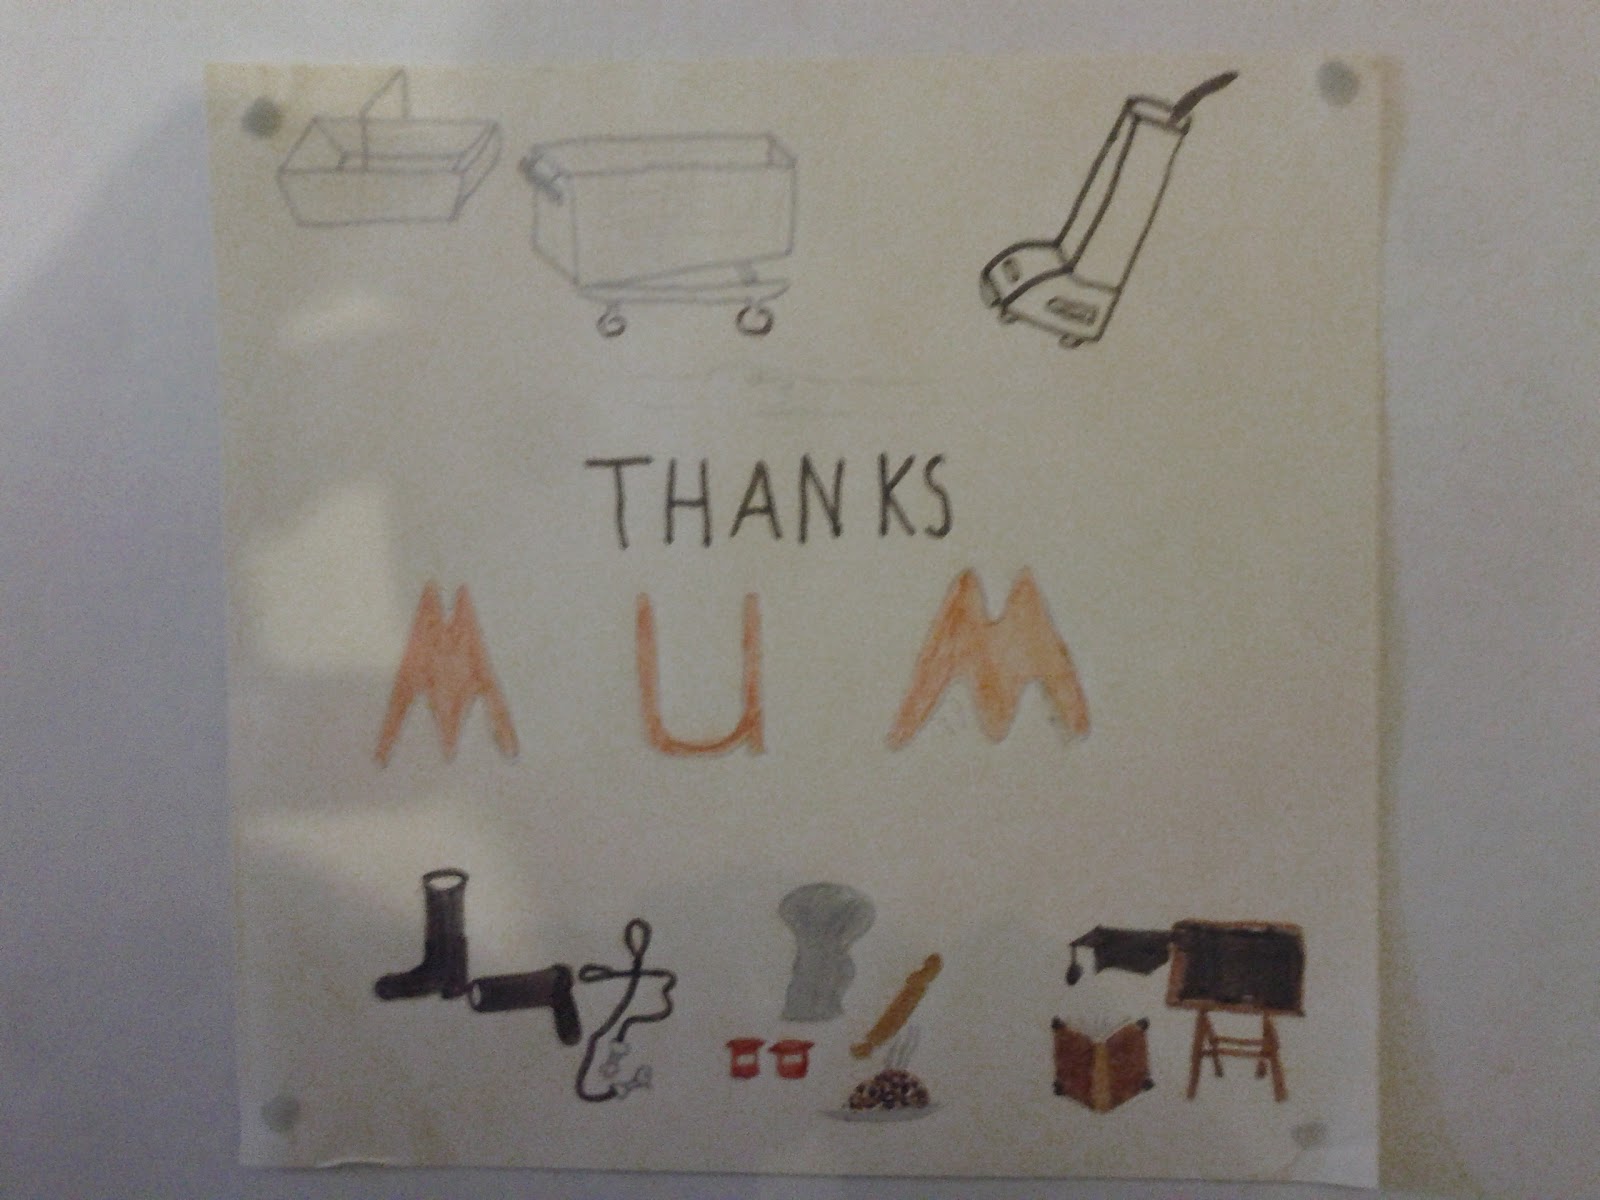 THANKS
MUM